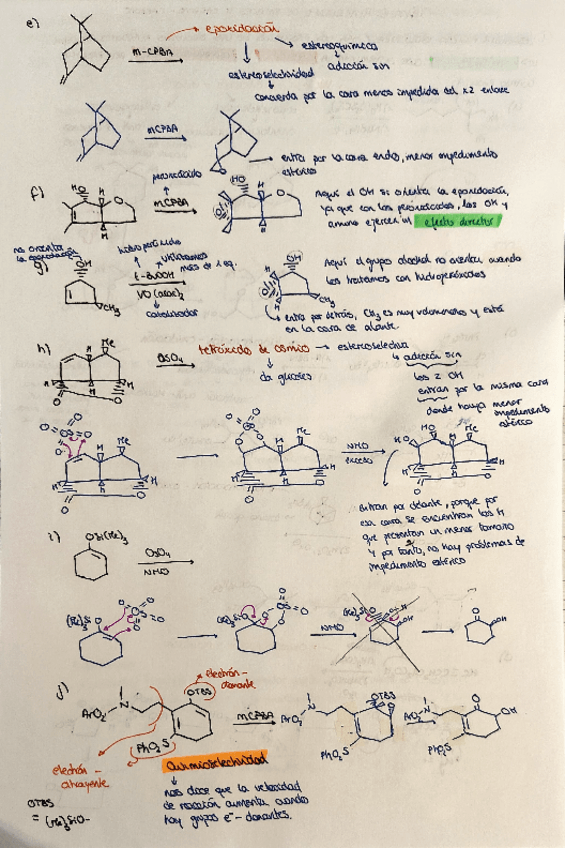 e)
m-CPBA
epoxidación
estereoquímica
adición sin
estereoselectividad
concuerda por la cara menos impedida del x2 enlace
mCPBA
entra por la cara endo, menor impedimento
estérico
f)
HO
H
O
H
perácido
mCPBA
HO
H
O
H
Aquí el OH si orienta la epoxidación,
ya que con los peroxiácidos, los OH y
amino ejercen un efecto director
no orienta
la epoxidación
g)
OH
CH3
hidroperóxido
t-BuOOH
VO(acac)2
catalizador
OH
CH3
Aquí el grupo alcohol no orienta cuando
los tratamos con hidroperóxidos
entra por detrás, CH3 es muy voluminoso y está
en la cara de alante.
h)
H
Me
H
H
H
O
O
OsO4
tetróxido de osmio
estereoselectiva
da glicoles
adición sin
los 2 OH
entran por la misma cara
donde haya menor
impedimento
estérico
O
Os
O
O
O
H
Me
H
H
H
O
O
O
Os
O
O
O
H
Me
H
H
H
O
O
NMO
exceso
HO
HO
H
Me
H
H
H
O
O
Entran por delante, porque por
esa cara se encuentran los H
que presentan un menor tamaño
y por tanto, no hay problemas de
impedimento estérico
i)
OSi(Me)3
OsO4
NMO
(Me)3SiO
O
Os
O
O
O
(Me)3SiO
O
Os
O
O
O
NMO
(Me)3Si
OH
O
OH
j)
ArO2
N
OTBS
PhO2S
electrón-
donante
mCPBA
ArO2
N
OTBS
O
PhO2S
ArO2
N
O
OH
PhO2S
electrón-
atrayente
Quimioselectividad
nos dice que la velocidad
de reacción aumenta cuando
hay grupos e- donantes.
OTBS
= (Me)3SiO-